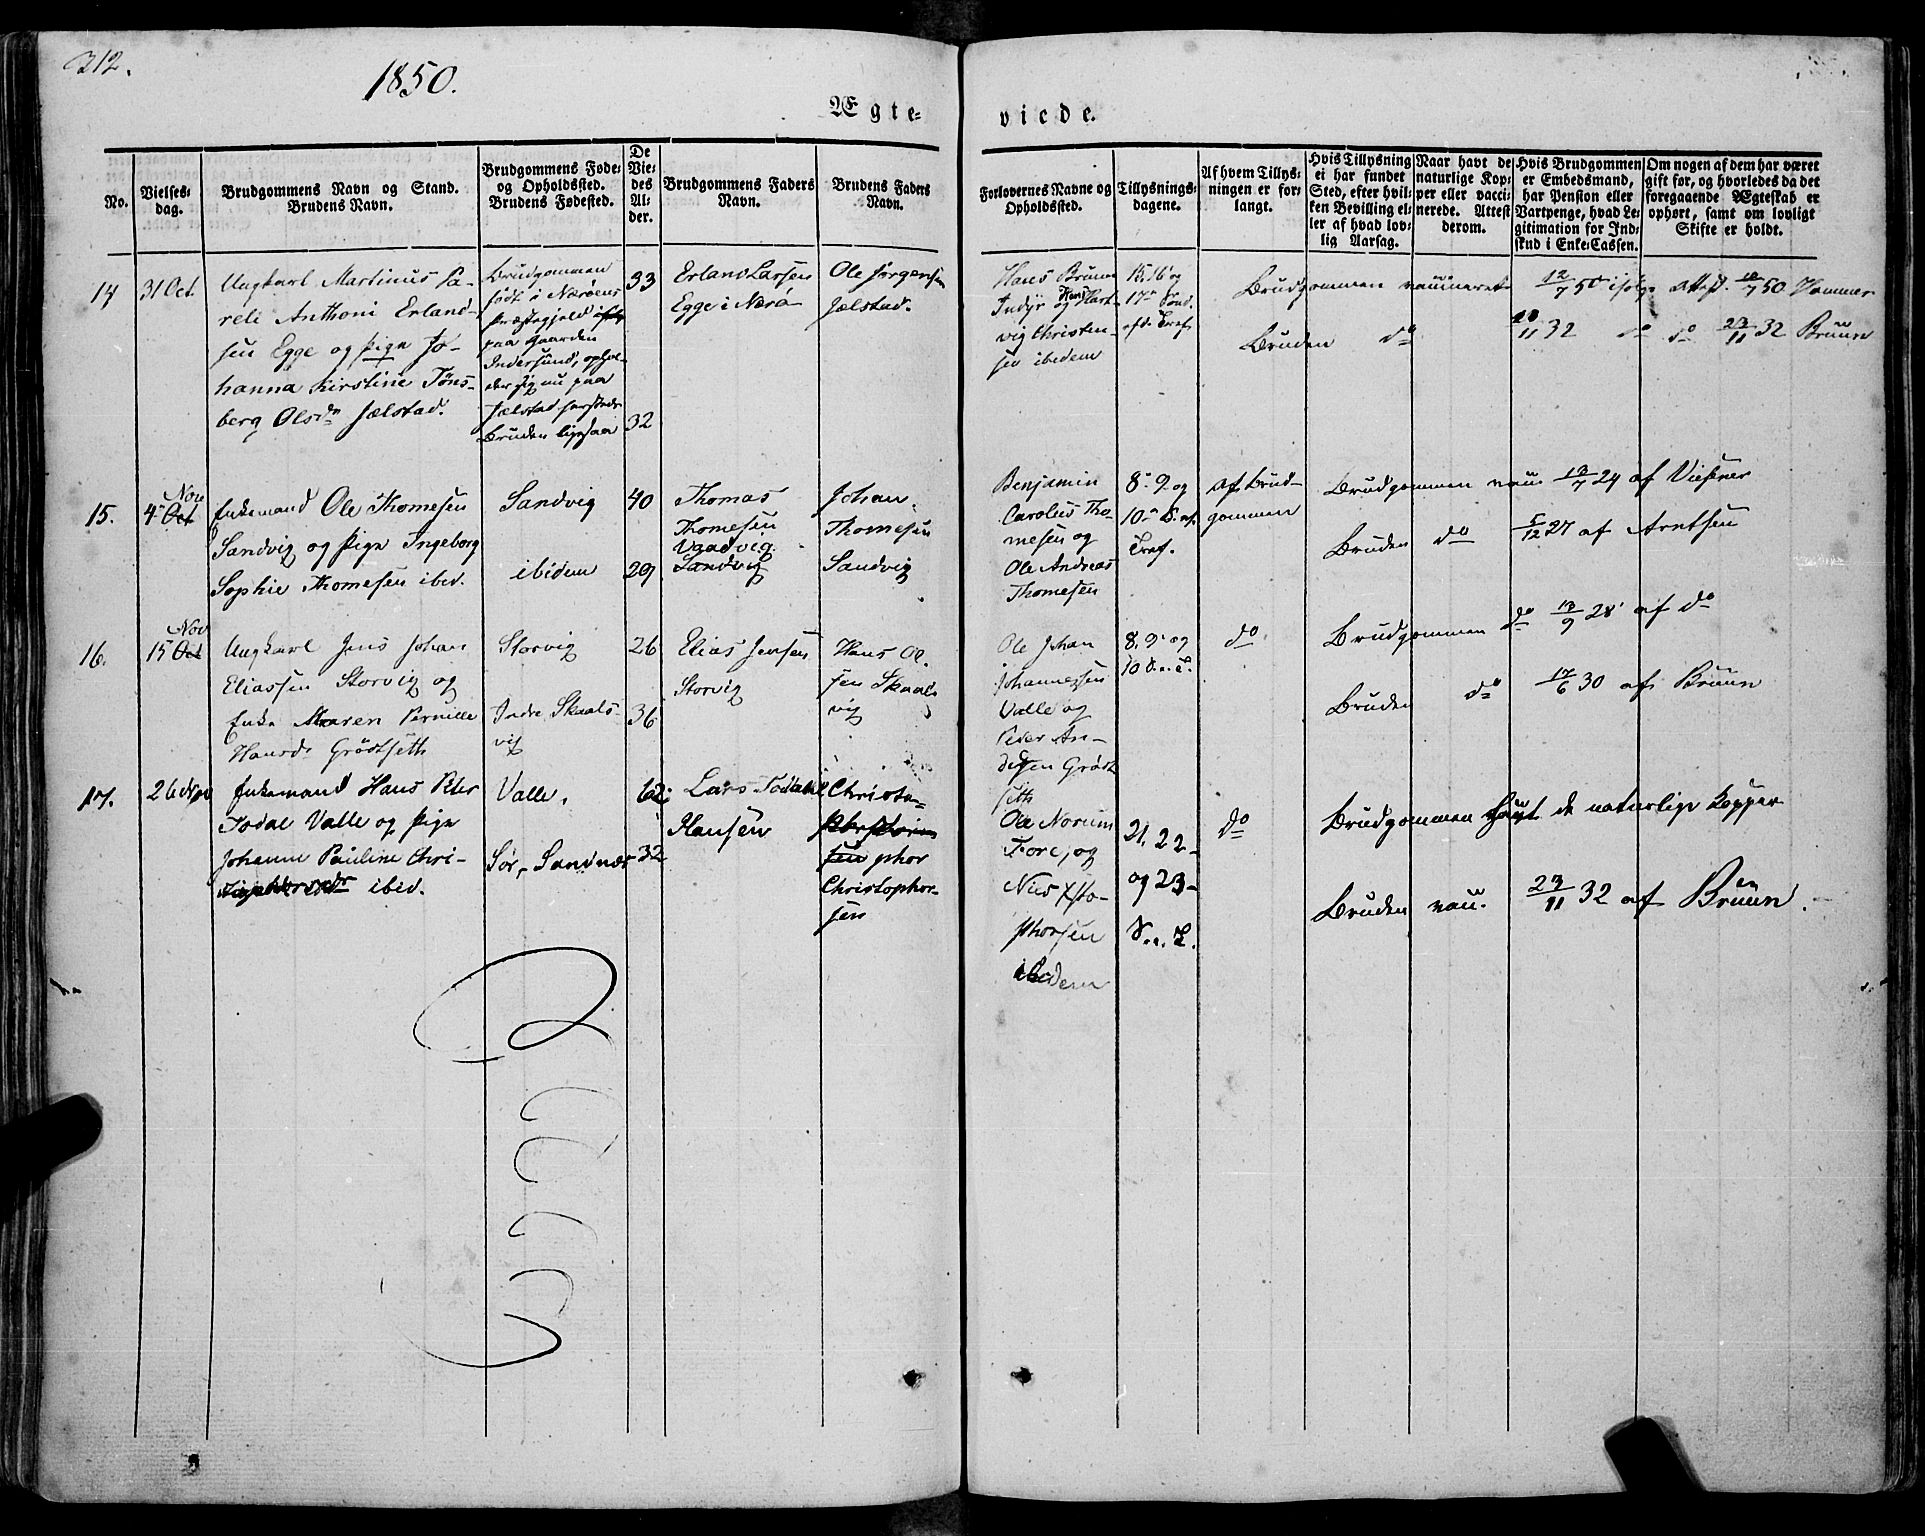 312.
1850.
Ægte=
viede.
No.
Vielses-
dag.
Brudgommens Navn og Stand.
Brudens Navn.
Brudgommens Føde-
og Opholdssted.
Brudens Fødested.
De
Vie-
des
Al-
der.
Brudgommens Faders
Navn.
Brudens Faders
Navn.
Forlovernes Navne og
Opholdssted.
Tillysnings-
dagene.
Af hvem Tillys-
ningen er for-
langt.
Hvis Tillysning
ei har fundet
Sted, efter hvil-
ken Bevilling el-
ler af hvad lov-
lig Aarsag.
Naar havt de
naturlige Kop-
per eller vacci-
nerede. Attest
derom.
Hvis Brudgommen
er Embedsmand,
har Pension eller
Vartpenge, hvad Le-
gitimation for Ind-
skud i Enke-Cassen.
Om nogen af dem har været
gift før, og hvorledes da det
foregaaende Ægteskab er
ophørt, samt om lovligt
Skifte er holdt.
14
31 Oct.
Ungkarl Martinus Pa-
reli Anthoni Erland-
sen Egge og Pige Jo-
hanna Kirstine Töns-
berg Olsdr Jælstad.
Brudgommen
født i Nærøens
Præstegjeld
paa Gaarden
Indersund, ophol-
der sig nu paa
Jælstad
Bruden ligesaa
33
32
Erland Larsen
Egge i Nærø
Ole Jørgensen
Jælstad.
Hans Bruun
Indyr og Hans Hart-
vig Christen-
sen ibidem
15, 16 og
17de Sønd.
efd. Tref.
Brudgommen vaccineret 12/7 50 ifølge Attest. 10/7 50 Hammer
Bruden do 23/11 32 do do 23/11 32 Bruun
15.
Nov
4de Oct
Enkemand Ole Thomesen
Sandvig og Pige Ingeborg
Sophie Thomesen ibid.
Sandvig
ibidem
40
29
Thomas
Thomesen
Vaadvig
Sandvig
Johan
Thomesen
Sandvig
Benjamin
Carolus Tho-
mesen og
Ole Andreas
Thomesen
8de 9de og
10de S. ef.
Tref.
af Brud-
gommen
Brudgommen vacc 13/7 24 af
Bruden do 5/12 27 af Arntsen
16.
Nov
15 Oct
Ungkarl Jens Johan
Eliassen Storvig og
Enke Maren Pernille
Hansdr Grödtseth
Storvig
Indre Skaals-
vig
26
36
Elias Jensen
Storvig
Hans Ol-
sen Skaals
vig
Ole Johan
Johannessen
Valle og
Peder An-
dersen Grödt
seth
8, 9de og
10 S. e. T.
do.
Brudgommen do 13/9 28 af do
Bruden do 17/6 30 af Bruun
17.
26de Nov
Enkemand Hans Peter
Todal Valle og Pige
Johanne Pauline Chri-
ibid.
Valle.
Sör-Sandnæs
62
32
Lars Todahl
Hansen
Christo-
sen phor
Christophor-
sen
Ole Norum
Fore, og
Niels Xsto-
phorsen
ibidem
21, 22-
og 23-
S. e. T.
do
Brudgommen havt de naturlige Kopper
Bruden vacc. 23/11 32 af Bruun.